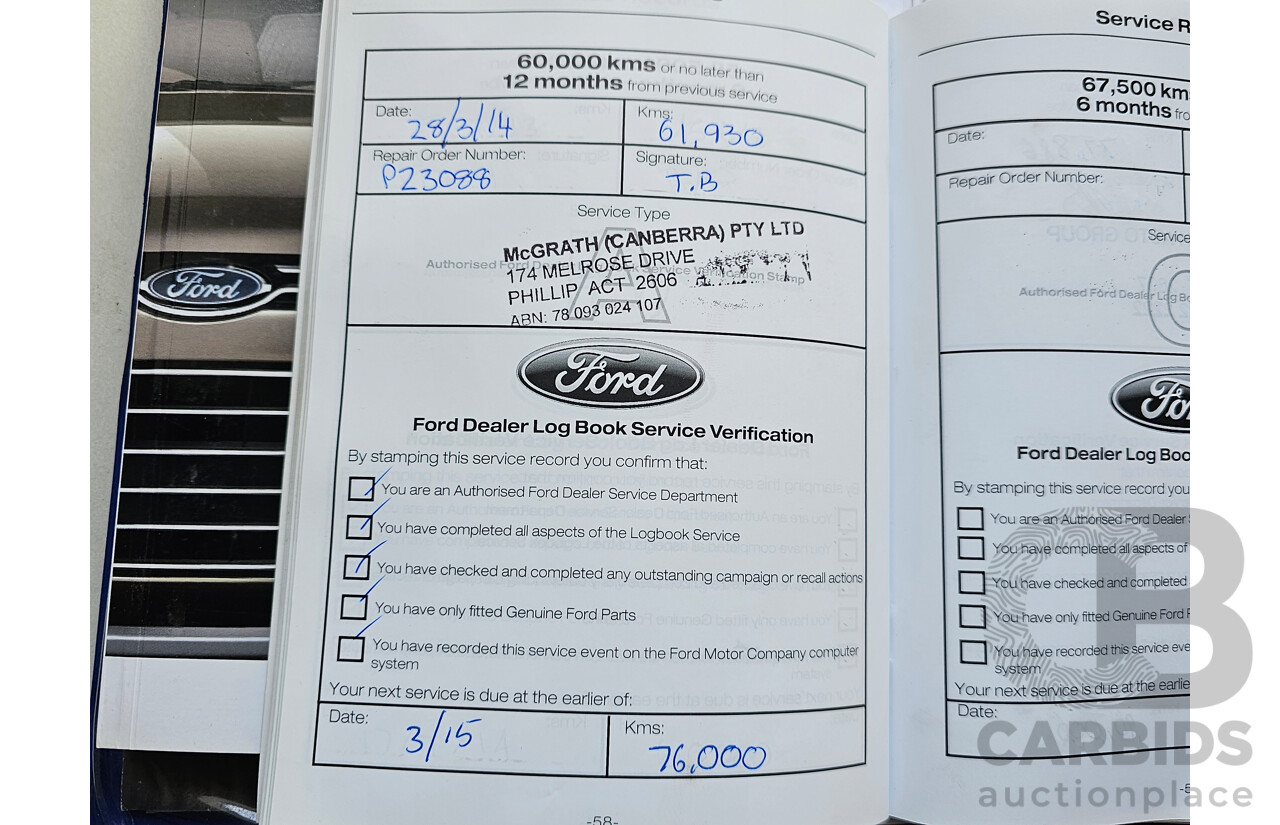 Ford
60,000 kms or no later than
12 months from previous service
Date:
28/3/14
Kms:
61,930
Repair Order Number:
P23088
Signature:
T.B
Service Type
A
Authorised Ford Dealer Log Book Service Verification Stamp
McGRATH (CANBERRA) PTY LTD
174 MELROSE DRIVE
PHILLIP ACT 2606
ABN: 78 093 024 107
Ford
Ford Dealer Log Book Service Verification
By stamping this service record you confirm that:
You are an Authorised Ford Dealer Service Department
You have completed all aspects of the Logbook Service
You have checked and completed any outstanding campaign or recall actions
You have only fitted Genuine Ford Parts
You have recorded this service event on the Ford Motor Company computer
system
Your next service is due at the earlier of:
Date:
3/15
Kms:
76,000
-58-
Service R
67,500 km
6 months fro
Date:
Repair Order Number:
Service
Authorised Ford Dealer Log Bo
Fo
Ford Dealer Log Boo
By stamping this service record you
You are an Authorised Ford Dealer
You have completed all aspects of
You have checked and completed
You have only fitted Genuine Ford P
You have recorded this service eve
system
Your next service is due at the earlie
Date:
CB
CARBIDS
auctionplace